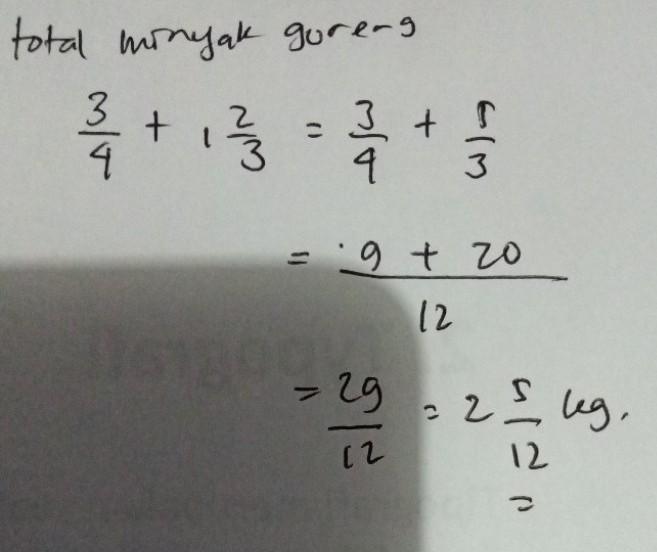 total minyak goreng
3/4 + 1 2/3 = 3/4 + 5/3
= 9 + 20 / 12
= 29/12 = 2 5/12 kg.